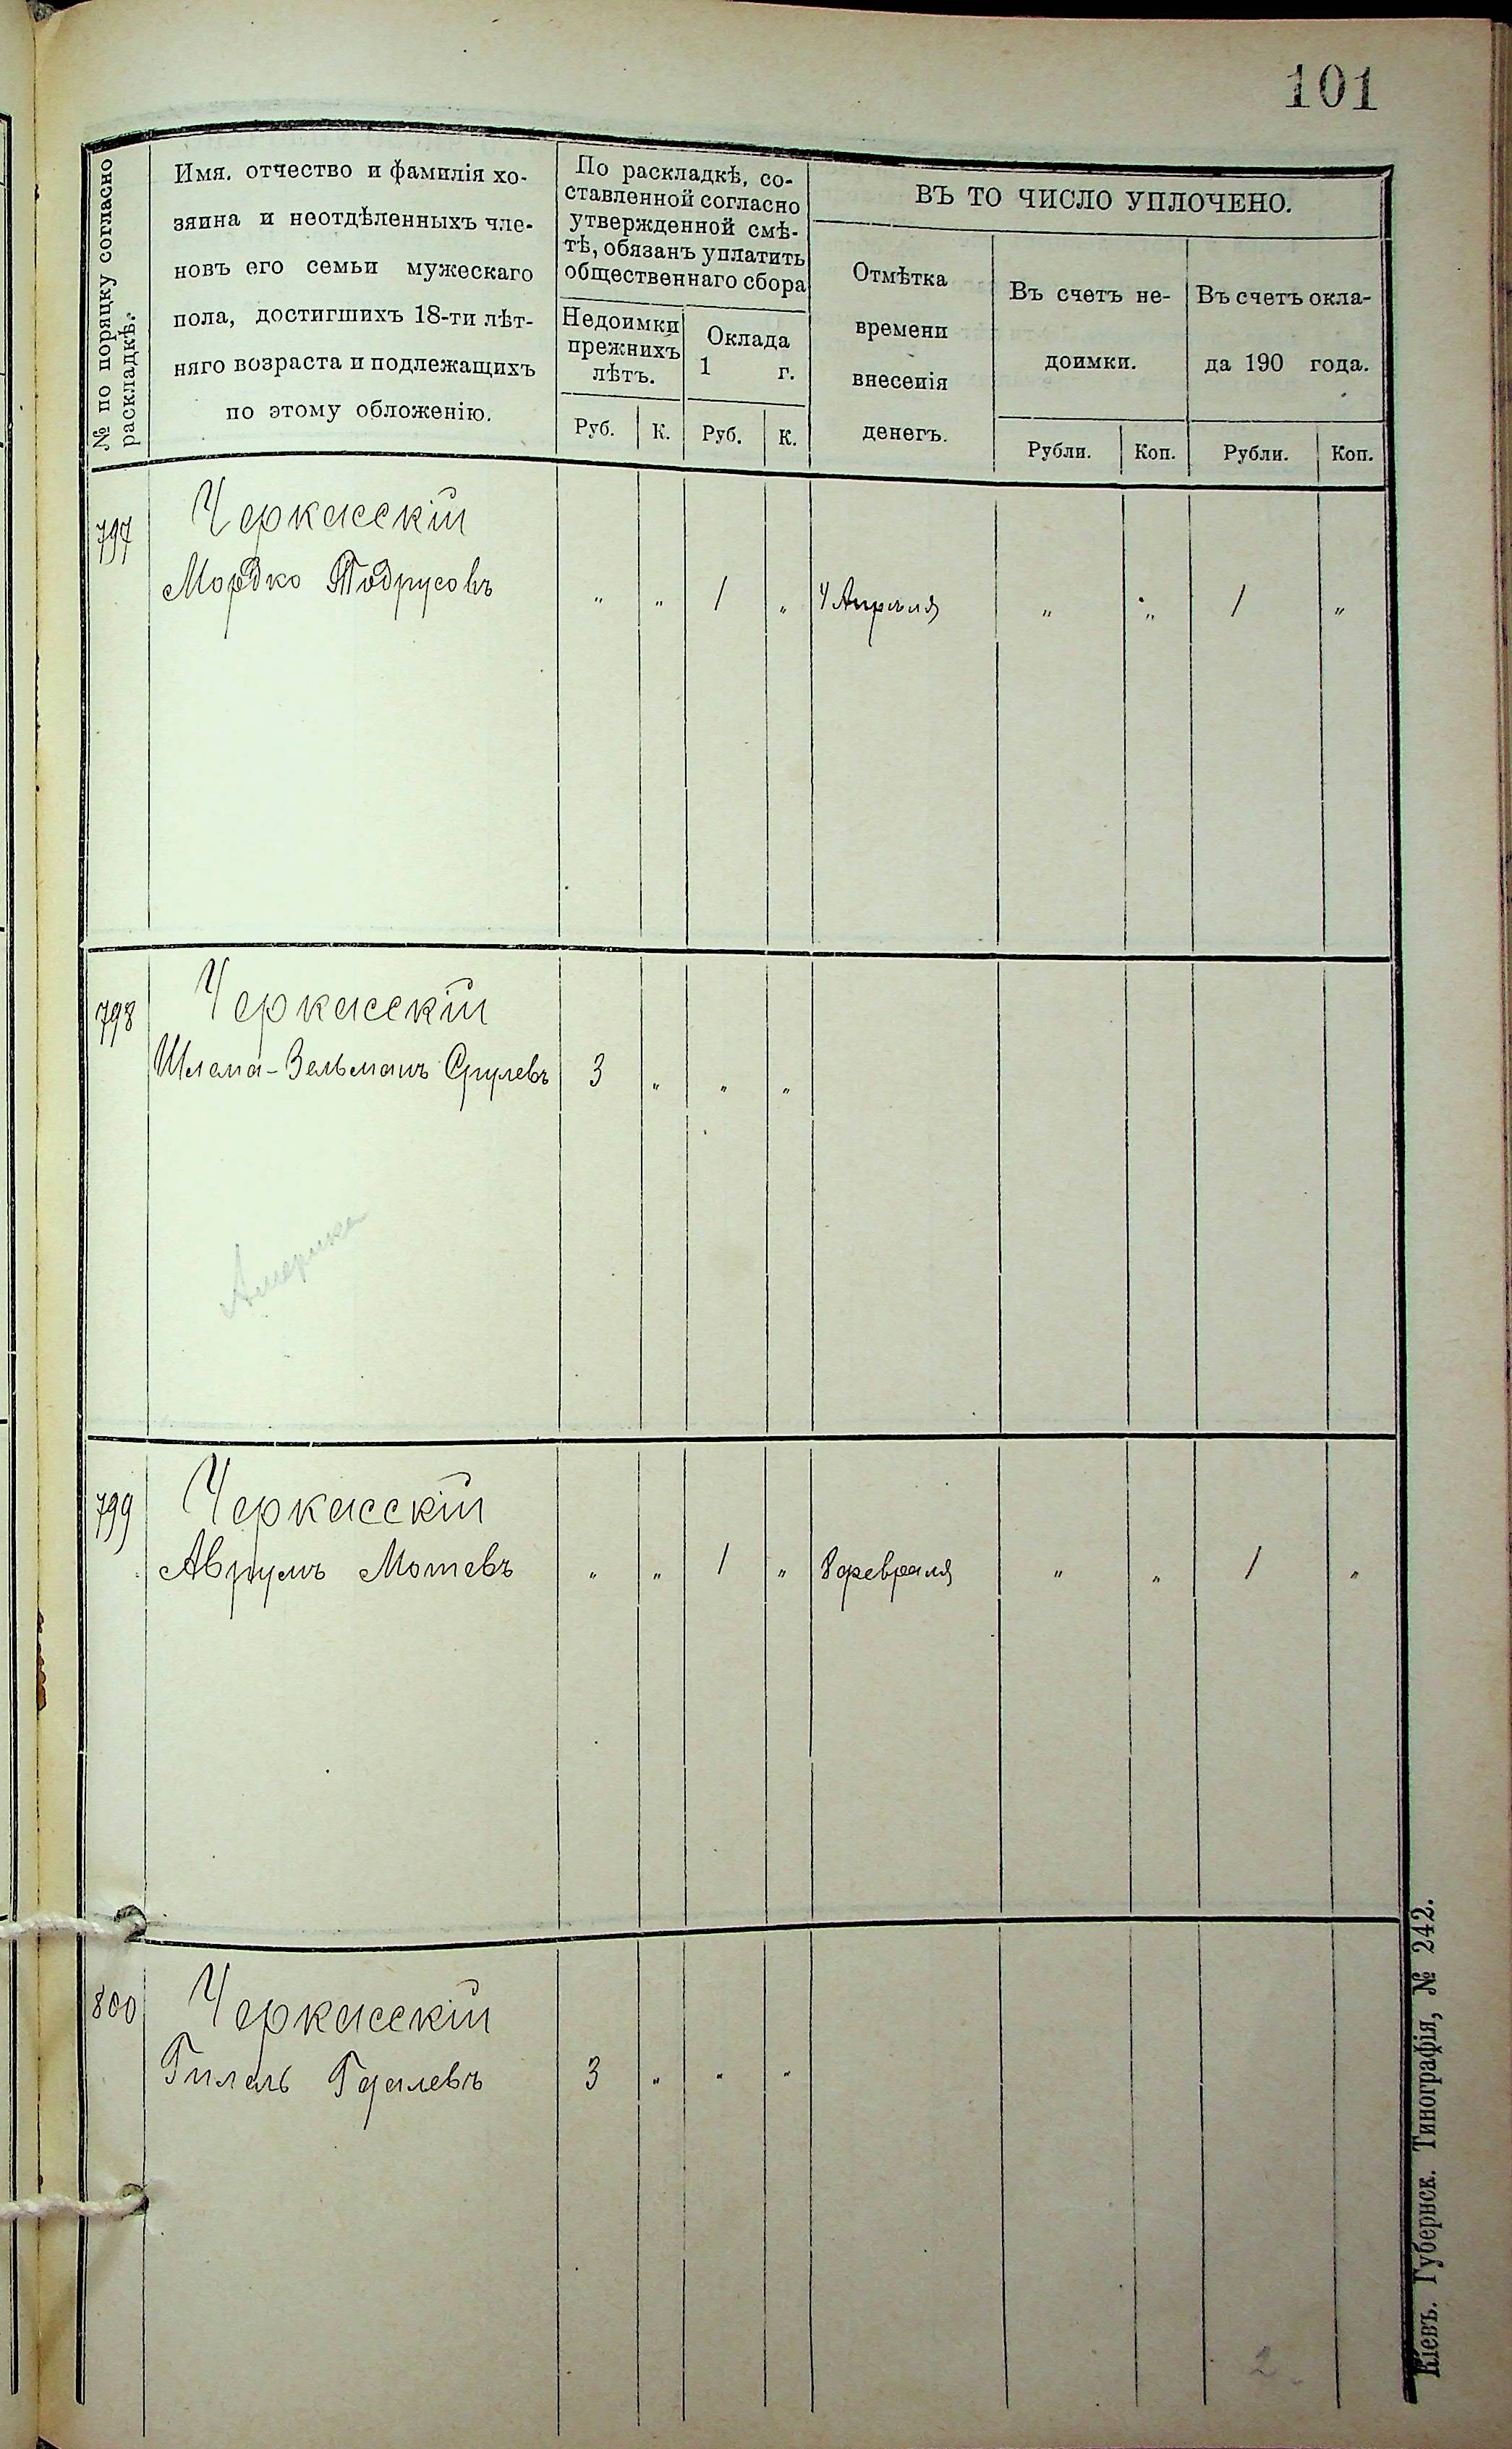 101
№ по порядку согласно
раскладкѣ.
Имя. отчество и фамилія хо-
зяина и неотдѣленныхъ чле-
новъ его семьи мужескаго
пола, достигшихъ 18-ти лѣт-
няго возраста и подлежащихъ
по этому обложенію.
По раскладкѣ, со-
ставленной согласно
утвержденной смѣ-
тѣ, обязанъ уплатить
общественнаго сбора
Недоимки
прежнихъ
лѣтъ.
Оклада
1 г.
Руб. К. Руб. К.
ВЪ ТО ЧИСЛО УПЛОЧЕНО.
Отмѣтка
времени
внесенія
денегъ.
Въ счетъ не-
доимки.
Въ счетъ окла-
да 190 года.
Рубли. Коп. Рубли. Коп.
797 Черкасскій
Мордко Тодрусовъ " " 1 " 4 Апрѣля " " 1 "
798 Черкасскій
Шлема-Зельманъ Срулевъ 3 " " "
Америка
799 Черкасскій
Аврумъ Мотевъ " " 1 " 8 февраля " " 1 "
800 Черкасскій
Гилель Гдалевъ 3 " " "
2
Кіевъ. Губернск. Типографія, № 242.